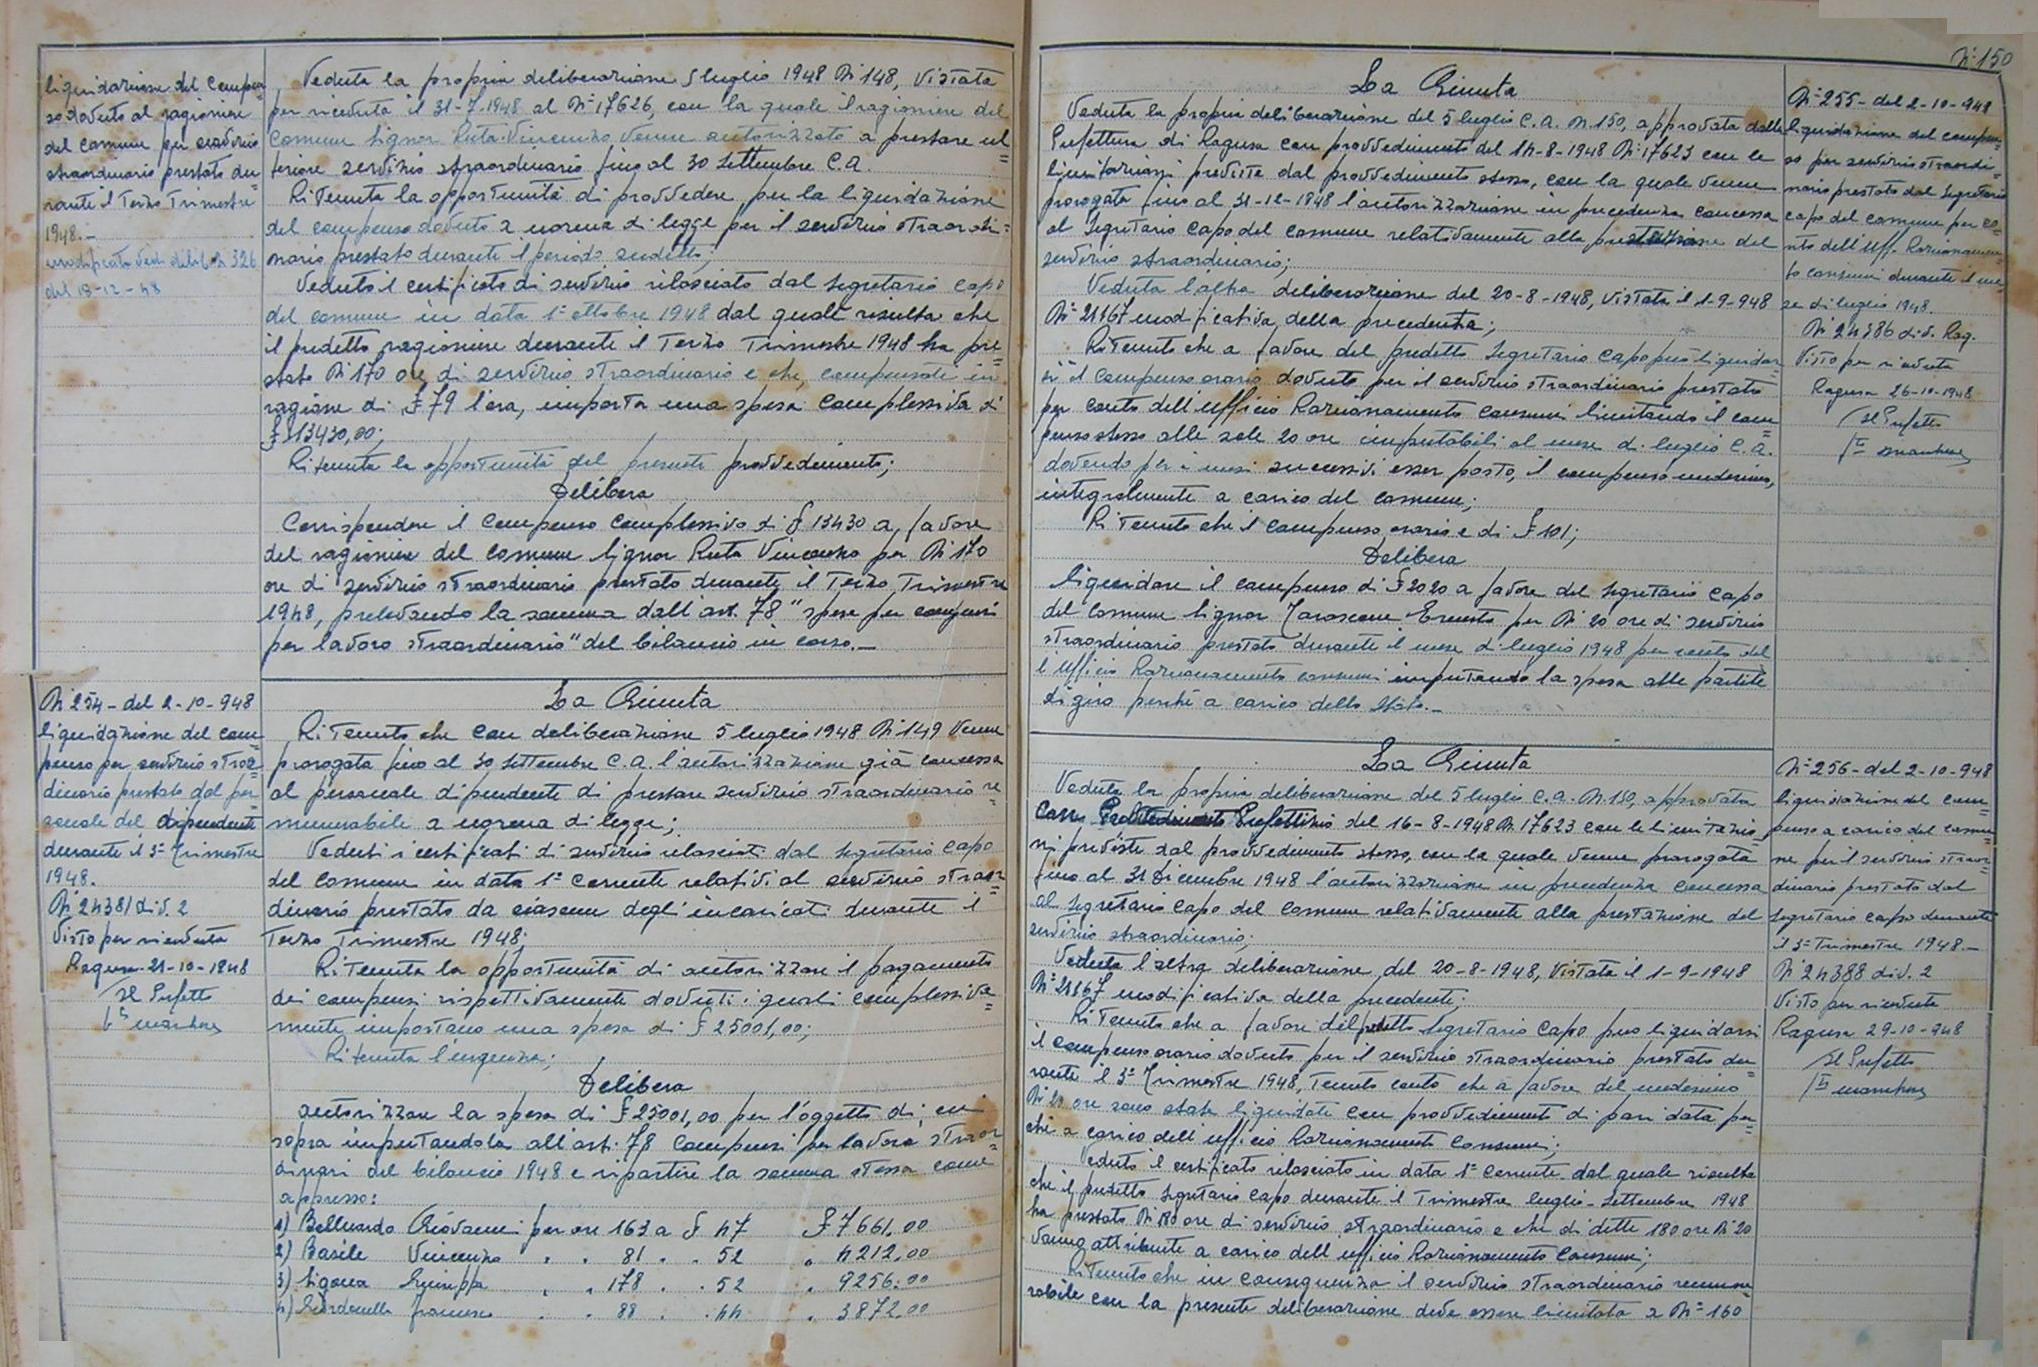 liquidazione del compen=
so dovuto al ragioniere
del comune per servizio
straordinario prestato du=
rante il Terzo Trimestre
1948.-
modificata vedi delib. N 326
del 18-12-48
Veduta la propria deliberazione 5 luglio 1948 N 148, vistata
per ricevuta il 31-7-1948 al N° 17626, con la quale il ragioniere del
Comune Signor Ruta Vincenzo venne autorizzato a prestare ul=
teriore servizio straordinario fino al 30 Settembre C.A.
Ritenuta la opportunità di provvedere per la liquidazione
del compenso dovuto a norma di legge per il servizio straordi=
nario prestato durante il periodo suddetto;
Veduto il certificato di servizio rilasciato dal Segretario capo
del comune in data 1° ottobre 1948 dal quale risulta che
il predetto ragioniere durante il Terzo Trimestre 1948 ha pre=
stato N 170 ore di servizio straordinario e che, compensate in
ragione di £ 79 l'ora, importa una spesa complessiva di
£ 13430,00;
Ritenuta la opportunità del presente provvedimento;
Delibera
Corrispondere il compenso complessivo di £ 13430 a favore
del ragioniere del comune Signor Ruta Vincenzo per N 170
ore di servizio straordinario prestato durante il Terzo Trimestre
1948, prelevando la somma dall'art. 78 "spese per compensi
per lavoro straordinario" del bilancio in corso.-
N 254 - del 2-10-948
liquidazione del com=
penso per servizio straor=
dinario prestato dal per=
sonale del dipendente
durante il 3° Trimestre
1948.
N° 24381 div. 2
Visto per ricevuta
Ragusa 21-10-1948
Il Prefetto
La Giunta
Ritenuto che con deliberazione 5 luglio 1948 N 149 venne
prorogata fino al 30 Settembre C.A. l'autorizzazione già concessa
al personale dipendente di prestare servizio straordinario re=
munerabile a norma di legge;
Veduti i certificati di servizio rilasciati dal Segretario capo
del comune in data 1° corrente relativi al servizio straor=
dinario prestato da ciascuno degl'incaricati durante il
Terzo Trimestre 1948;
Ritenuta la opportunità di autorizzare il pagamento
dei compensi rispettivamente dovuti i quali complessiva=
mente importano una spesa di £ 25001,00;
Ritenuta l'urgenza;
Delibera
autorizzare la spesa di £ 25001,00 per l'oggetto di cui
sopra imputandola all'art. 78 Compensi per lavoro straor=
dinari del bilancio 1948 e ripartire la somma stessa come
appresso:
1) Belluardo Giovanni per ore 163 a £ 47 £ 7661,00
2) Basile Vincenzo " " 81 " " 52 " 4212,00
3) Ligorea Giuseppa " " 178 " " 52 " 9256,00
4) Giardinella Francesco " " 88 " " 44 " 3872,00
N° 150
La Giunta
Veduta la propria deliberazione del 5 luglio C.A. N. 150, approvata dalla
Prefettura di Ragusa con provvedimento del 14-8-1948 N. 17623 con le
limitazioni previste dal provvedimento stesso, con la quale venne
prorogata fino al 31-12-1948 l'autorizzazione in precedenza concessa
al Segretario capo del comune relativamente alla prestazione del
servizio straordinario;
Veduta l'altra deliberazione del 20-8-1948, vistata il 1-9-948
N° 21167 modificativa della precedente;
Ritenuto che a favore del predetto Segretario capo può liquidar=
si il compenso orario dovuto per il servizio straordinario prestato
per conto dell'ufficio Razionamento consumi limitando il com=
penso stesso alle sole 20 ore imputabili al mese di luglio C.A.
dovendo per i mesi successivi esser posto, il compenso medesimo,
integralmente a carico del comune;
Ritenuto che il compenso orario è di £ 101;
Delibera
liquidare il compenso di £ 2020 a favore del Segretario capo
del comune Signor Ernesto per N 20 ore di servizio
straordinario prestato durante il mese di luglio 1948 per conto del
l'ufficio Razionamento consumi imputando la spesa alle partite
di giro perché a carico dello Stato.-
N° 255 - del 2-10-948
liquidazione del compen=
so per servizio straordi=
nario prestato dal Segretario
capo del comune per co=
nto dell'Uff. Razionamen=
to consumi durante il me=
se di luglio 1948.
N° 24386 div. Rag.
Visto per ricevuta
Ragusa 26-10-1948
Il Prefetto
La Giunta
Veduta la propria deliberazione del 5 luglio C.A. N. 150, approvata
con Provvedimento Prefettizio del 16-8-1948 N 17623 con le limitazio
ni previste dal provvedimento stesso, con la quale venne prorogata
fino al 31 Dicembre 1948 l'autorizzazione in precedenza concessa
al Segretario capo del comune relativamente alla prestazione del
servizio straordinario;
Veduta l'altra deliberazione del 20-8-1948, vistata il 1-9-1948
N° 21167 modificativa della precedente;
Ritenuto che a favore del predetto Segretario capo può liquidarsi
il compenso orario dovuto per il servizio straordinario prestato du=
rante il 3° Trimestre 1948, tenuto conto che a favore del medesimo
N° 20 ore sono state liquidate con provvedimento di pari data per=
ché a carico dell'ufficio Razionamento Consumi;
Veduto il certificato rilasciato in data 1° corrente dal quale risulta
che il predetto Segretario capo durante il Trimestre luglio-Settembre 1948
ha prestato N 180 ore di servizio straordinario e che di dette 180 ore N° 20
vanno attribuite a carico dell'ufficio Razionamento Consumi;
Ritenuto che in conseguenza il servizio straordinario remune=
rabile con la presente deliberazione deve essere limitato a N° 160
N° 256 - del 2-10-948
liquidazione del com=
penso a carico del comu=
ne per il servizio straor=
dinario prestato dal
Segretario capo durante
il 3° Trimestre 1948.-
N° 24388 div. 2
Visto per ricevuta
Ragusa 29-10-948
Il Prefetto